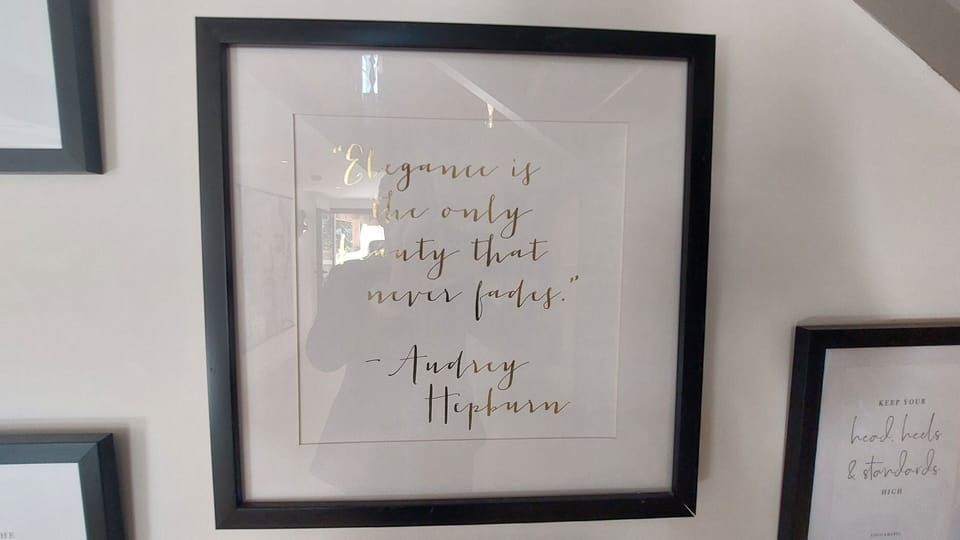 "Elegance is
the only
beauty that
never fades."
- Audrey
Hepburn
KEEP YOUR
head, heels
& standards
HIGH
HE